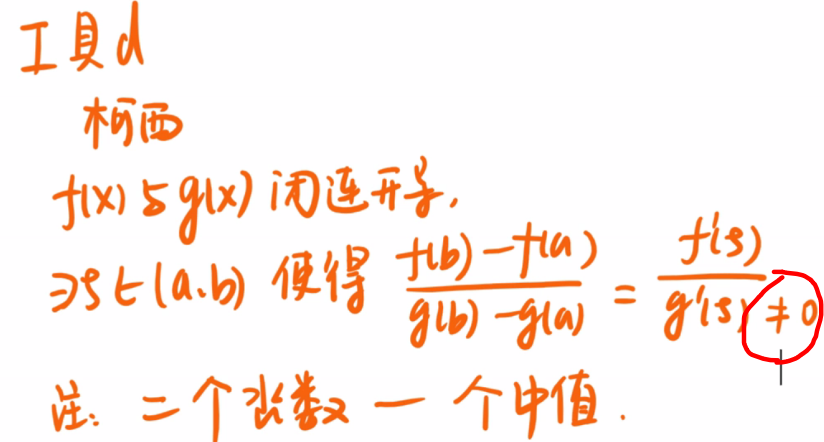 工具d
柯西
f(x)与g(x)闭连开导,
∃ξ∈(a,b) 使得 \frac{f(b)-f(a)}{g(b)-g(a)} = \frac{f'(ξ)}{g'(ξ)≠0}
注: 二个函数一个中值.